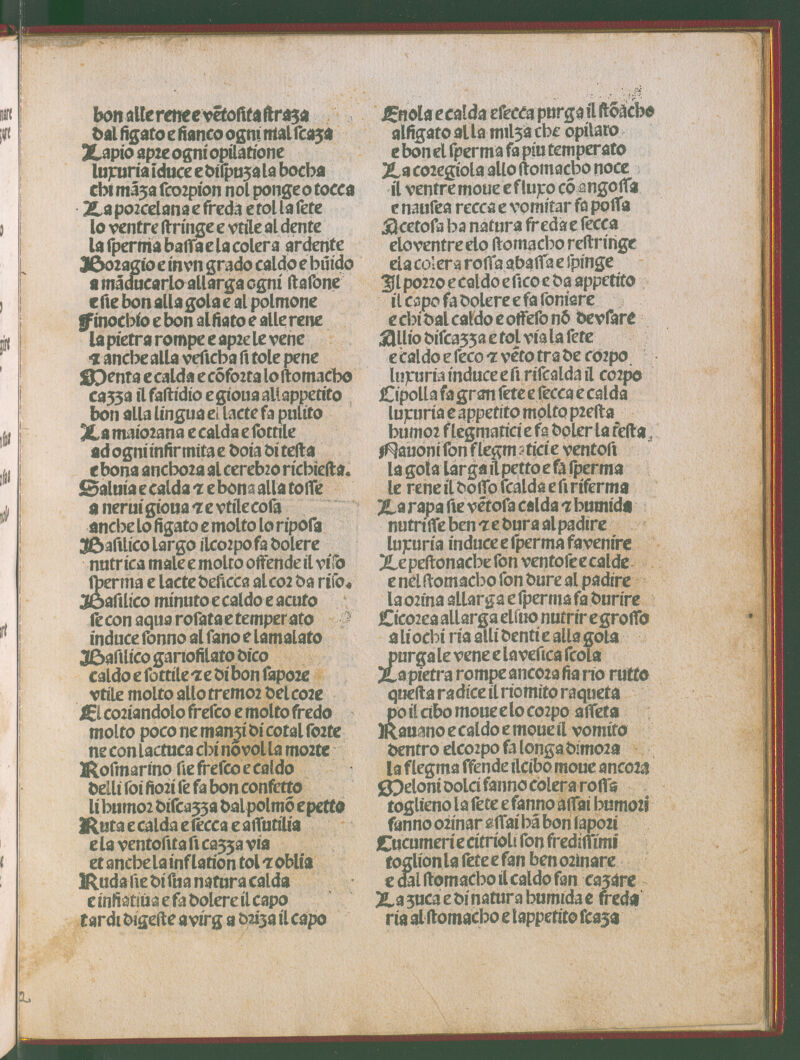 bon alle rene e vētoſita ſtraza
dal figato e fianco ogni mal ſcaza
Lapio apre ogni opilatione
luxuria iduce e diſpuza la bocha
chi māza ſcorpion nol ponge o tocca
La porcelana e freda e tol la ſete
lo ventre ſtringe e vtile al dente
la ſperma baſſa e la colera ardente
Boragio e in vn grado caldo e hūido
a māducarlo allarga ogni ſtaſone
e ſie bon alla gola e al polmone
Finochio e bon al fiato e alle rene
la pietra rompe e apre le vene
⁊ anche alla veſicha ſi tole pene
Menta e calda e cōforta lo ſtomacho
cazza il faſtidio e gioua all appetito
bon alla lingua el lacte fa pulito
La maiorana e calda e ſottile
ad ogni infirmita e doia di teſta
e bona anchora al cerebro richieſta.
Saluia e calda ⁊ e bona alla toſſe
a nerui gioua ⁊ e vtile coſa
anche lo figato e molto lo ripoſa
Baſilico largo il corpo fa dolere
nutrica male e molto offende il viſo
ſperma e lacte deſicca al cor da riſo.
Baſilico minuto e caldo e acuto
ſe con aqua roſata e temperato
induce ſonno al ſano e lamalato
Baſilico gariofilato dico
caldo e ſottile ⁊ e di bon ſapore
vtile molto allo tremor del core
El coriandolo freſco e molto fredo
molto poco ne manzi di cotal ſorte
ne con lactuca chi nō vol la morte
Roſmarino ſie freſco e caldo
delli ſoi fiori ſe fa bon confetto
li humor diſcazza dal polmō e petto
Ruta e calda e ſecca e aſſutilia
e la ventoſita ſi cazza via
et anche la inflation tol ⁊ oblia
Ruda ſie di ſua natura calda
e infiatiua e fa dolere il capo
tardi digeſte a virg a driza il capo
Enola e calda e ſecca purga il ſtōacho
al figato al la milza che opilato
e bon el ſperma fa piu temperato
La coregiola allo ſtomacho noce
il ventre moue e fluxo cō angoſſa
e nauſea recca e vomitar fa poſſa
Acetoſa ha natura freda e ſecca
elo ventre elo ſtomacho reſtringe
e la colera roſſa abaſſa e ſpinge
Il porro e caldo e ſico e da appetito
il capo fa dolere e fa ſoniare
e chi dal caldo e offeſo nō de vſare
Allio diſcazza e tol via la ſete
e caldo e ſeco ⁊ vēto tra de corpo
luxuria induce e ſi riſcalda il corpo
Cipolla fa gran ſete e ſecca e calda
luxuria e appetito molto preſta
humor flegmatici e fa doler la teſta
Nauoni ſon flegmatici e ventoſi
la gola larga il petto e fa ſperma
le rene il doſſo ſcalda e ſi riferma
La rapa ſie vētoſa calda ⁊ humida
nutriſſe ben ⁊ e dura al padire
luxuria induce e ſperma fa venire
Le peſtonache ſon ventoſe e calde
e nel ſtomacho ſon dure al padire
la orina allarga e ſperma fa durire
Cicorea allarga el ſuo nutrir e groſſo
a li ochi ria alli denti e alla gola
purga le vene e la veſica ſcola
La pietra rompe ancora fia rio rutto
queſta radice il riomito raqueta
po il cibo moue e lo corpo aſſeta
Rauano e caldo e moue il vomito
dentro el corpo fa longa dimora
la flegma ffende il cibo moue ancora
Meloni dolci fanno colera roſſa
toglieno la ſete e fanno aſſai humori
fanno orinar aſſai hā bon ſapori
Cucumeri e citrioli ſon frediſſimi
toglion la ſete e fan ben orinare
e dal ſtomacho il caldo fan cazare
La zuca e di natura humida e freda
ria al ſtomacho e lappetito ſcaza